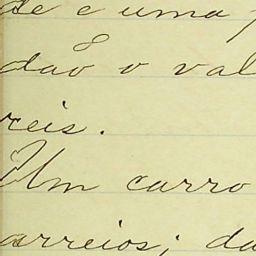 se e uma
dão o val
reis.
Um carro
arreios; da